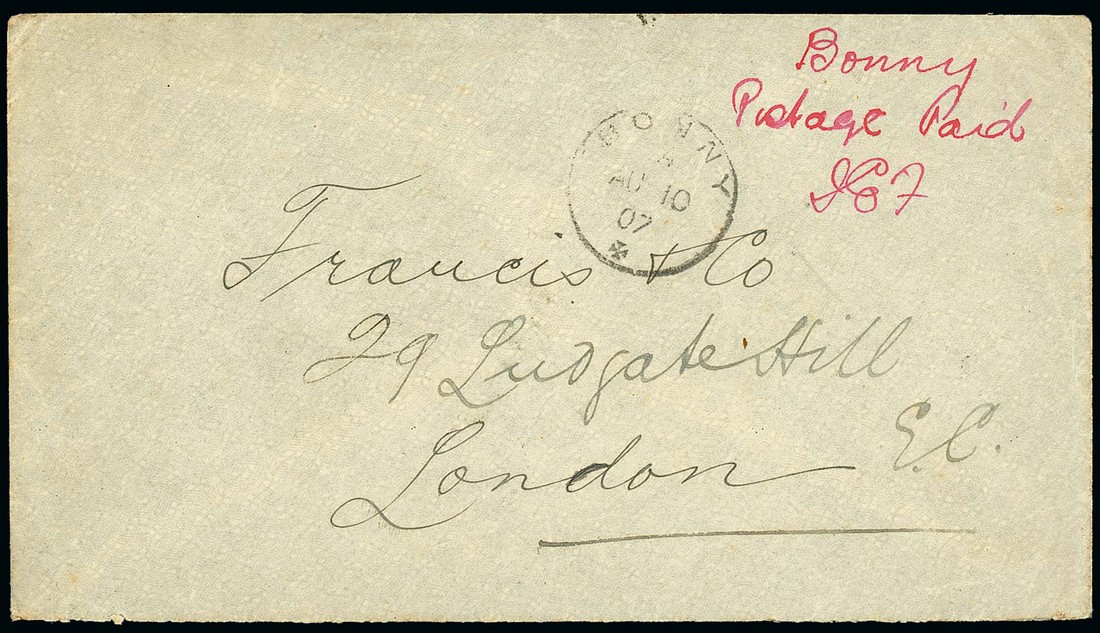 Bonny
Postage Paid
BONNY
A
AU 10
07
Francis & Co
29 Ludgate Hill
London E.C.